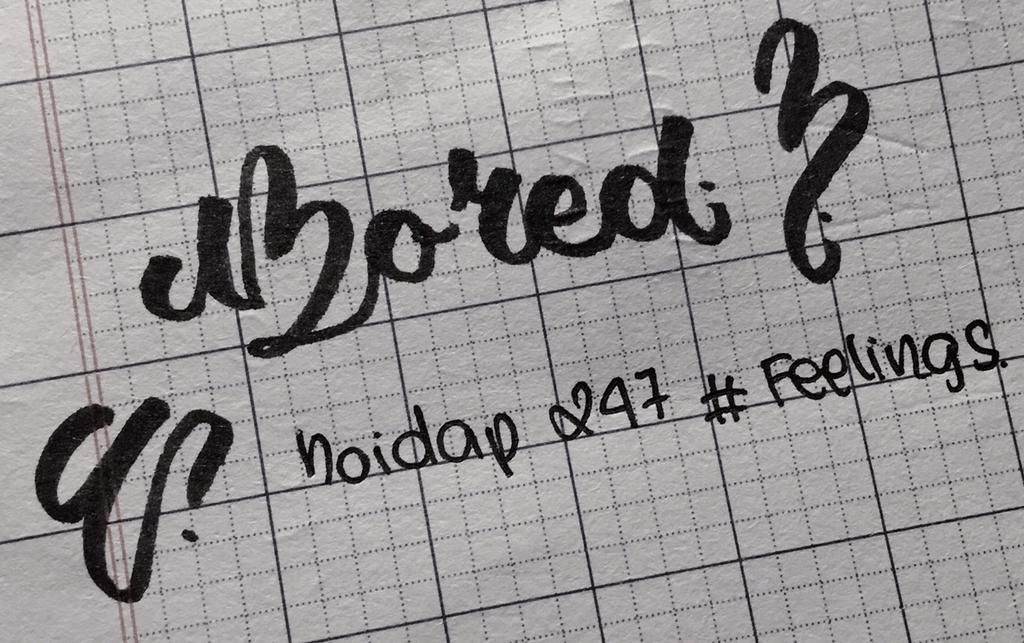 Bored ?
noidap 247 # Feelings.